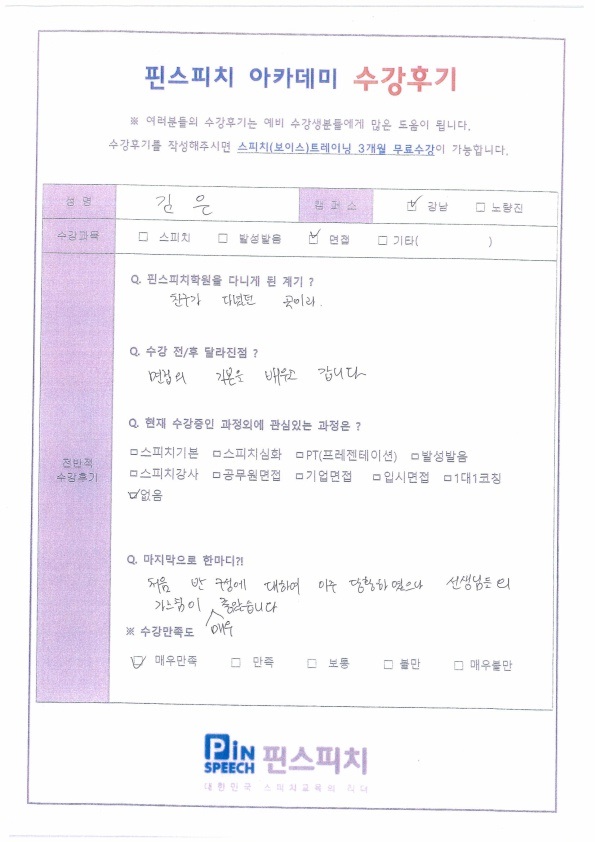 핀스피치 아카데미 수강후기
※ 여러분들의 수강후기는 예비 수강생분들에게 많은 도움이 됩니다.
수강후기를 작성해주시면 스피치(보이스)트레이닝 3개월 무료수강이 가능합니다.
성 명 김 은 캠퍼스 ☑ 강남 □ 노량진
수강과목 □ 스피치 □ 발성발음 ☑ 면접 □ 기타( )
Q. 핀스피치학원을 다니게 된 계기 ?
친구가 다녔던 곳이라.
Q. 수강 전/후 달라진점 ?
면접의 기본을 배우고 갑니다
Q. 현재 수강중인 과정외에 관심있는 과정은 ?
□스피치기본 □스피치심화 □PT(프레젠테이션) □발성발음
전반적
수강후기
□스피치강사 □공무원면접 □기업면접 □입시면접 □1대1코칭
☑없음
Q. 마지막으로 한마디?!
처음 반 구성에 대하여 아주 당황하였으나 선생님들의
가르침이 매우 좋았습니다
※ 수강만족도
☑ 매우만족 □ 만족 □ 보통 □ 불만 □ 매우불만
PiN
SPEECH 핀스피치
대한민국 스피치교육의 리더